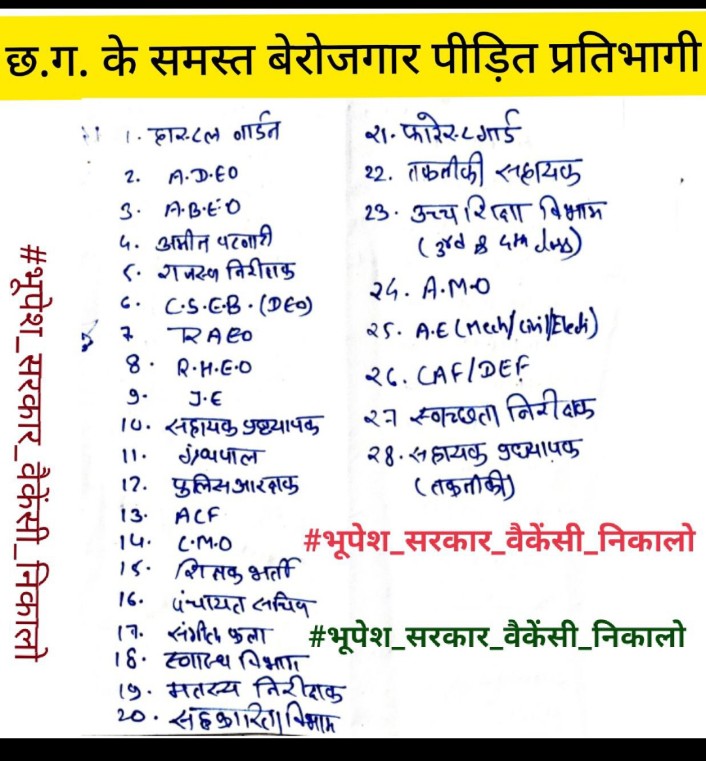 छ.ग. के समस्त बेरोजगार पीड़ित प्रतिभागी
#भूपेश_सरकार_वैकेंसी_निकालो
1. हास्टल वार्डन
2. A.D.EO
3. A.B.E.O
4. अमीन पटवारी
5. राजस्व निरीक्षक
6. C.S.E.B. (DEO)
7 RAEO
8. R.H.E.O
9. J.E
10. सहायक प्राध्यापक
11. ग्रंथपाल
12. पुलिस आरक्षक
13. ACF
14. C.M.O
15. शिक्षक भर्ती
16. पंचायत सचिव
17. संगीत कला
18. स्वास्थ विभाग
19. मतस्य निरीक्षक
20. सहकारिता विभाग
21. फारेस्ट गार्ड
22. तकनीकी सहायक
23. उच्च शिक्षा विभाग
(3rd & 4th class)
24. A.M.O
25. A.E (Mech/Civil/Elect)
26. CAF/DEF
27 स्वच्छता निरीक्षक
28. सहायक प्राध्यापक
(तकनीकी)
#भूपेश_सरकार_वैकेंसी_निकालो
#भूपेश_सरकार_वैकेंसी_निकालो